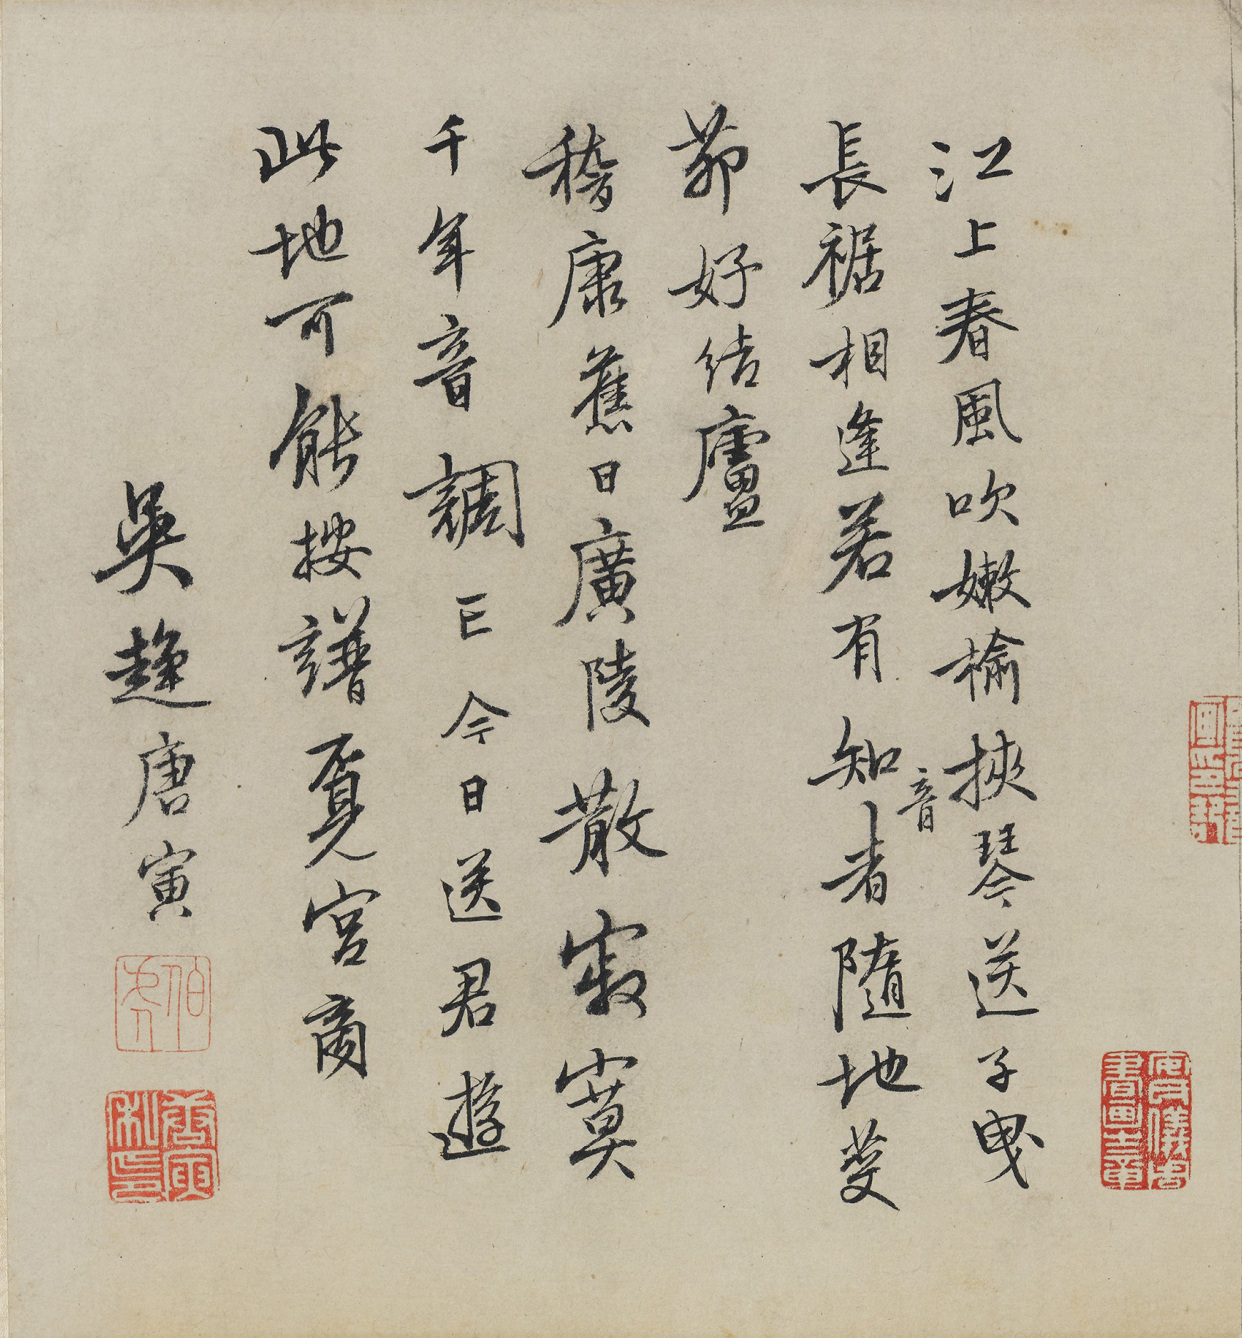 江上春風吹嫩榆挾琴送子曳
長裾相逢若有知音者隨地芟
茆好結廬
嵇康舊日廣陵散寂寞
千年音調亡今日送君遊
此地可能按譜覓宮商
吳趨唐寅
伯虎
唐寅私印